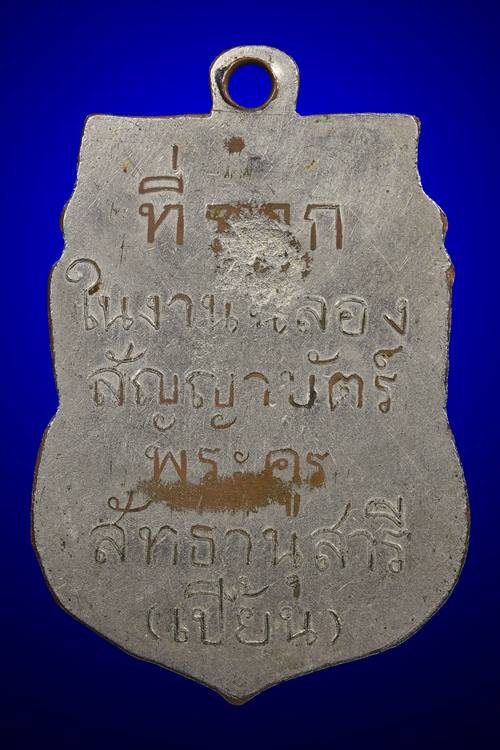 ที่ระลึก
ในงานฉลอง
สัญญาบัตร์
พระครู
สัทธานุสารี
(เปี้ยน)